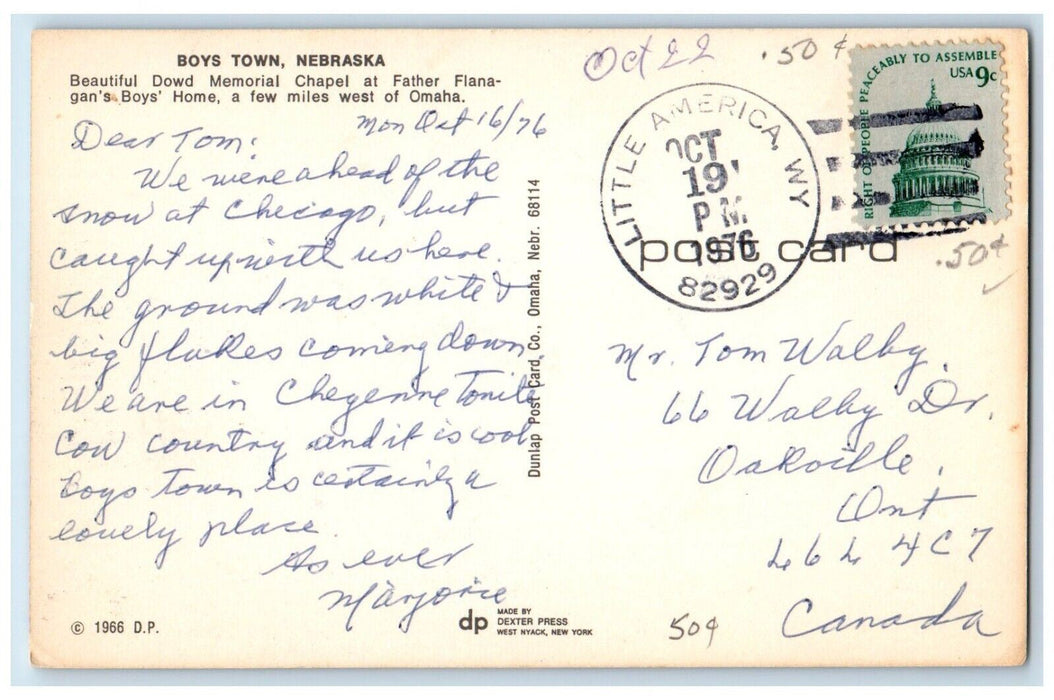 BOYS TOWN, NEBRASKA
Beautiful Dowd Memorial Chapel at Father Flana-
gan's Boys' Home, a few miles west of Omaha.
Mon Oct 16/76
Dear Tom:
We were ahead of the
snow at Chicago, but
caught up with us here.
The ground was white &
big flakes coming down
We are in Cheyenne Tonite
Cow country and it is cool
Boys Town is certainly a
lovely place.
As ever
Marjorie
© 1966 D.P.
dp MADE BY
DEXTER PRESS
WEST NYACK, NEW YORK
Dunlap Post Card Co., Omaha, Nebr. 68114
Oct 22
.50¢
LITTLE AMERICA, WY
OCT
19
PM
1976
82929
RIGHT OF PEOPLE PEACEABLY TO ASSEMBLE
USA 9c
post card
.50¢
Mr. Tom Walby.
66 Walby Dr.
Oakville.
Ont
L6L 4C7
Canada
50¢